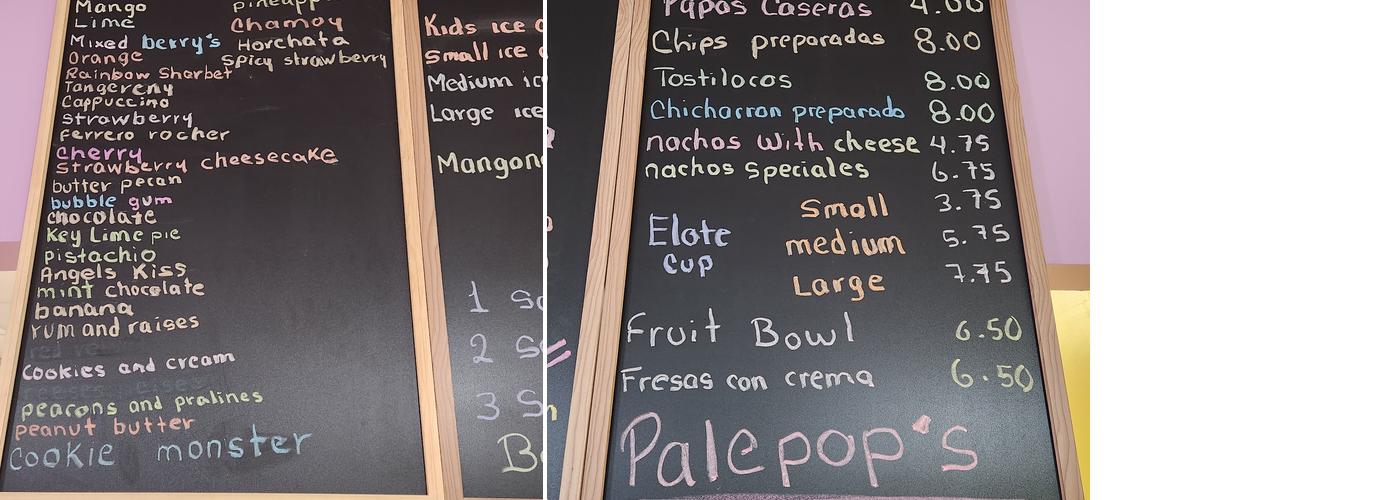 Mango pineapp
Lime Chamoy
Mixed berry's Horchata
Orange Spicy strawberry
Rainbow Sharbet
Tangereny
Cappuccino
strawberry
ferrero rocher
Cherry
strawberry cheesecake
butter pecan
bubble gum
chocolate
Key Lime pie
pistachio
Angels Kiss
mint chocolate
banana
rum and raises
cookies and cream
pearons and pralines
peanut butter
cookie monster
Kids ice
Small ice
Medium ic
Large ice
Mangon
1 Sc
2 S
3 S
B
Papas Caseras 4.00
Chips preparadas 8.00
Tostilocos 8.00
Chicharron preparado 8.00
nachos with cheese 4.75
nachos Speciales 6.75
Elote cup
Small 3.75
medium 5.75
Large 7.75
Fruit Bowl 6.50
Fresas con crema 6.50
Palepop's